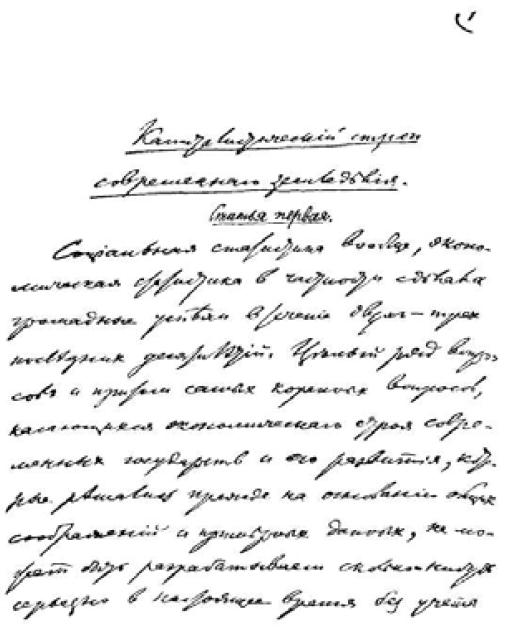 Капиталистическій строй
современнаго земледѣлія.
Статья первая.
Соціальная статистика вообще, эконо-
мическая статистика в частности сдѣлала
громадные успѣхи в теченіе двух-трех
послѣдних десятилѣтій. Цѣлый ряд вопро-
сов и притом самых коренных вопросов,
касающихся экономическаго строя совре-
менных государств и его развитія, кото-
рые рѣшались прежде на основаніи общих
соображеній и примѣрных данных, не мо-
жет быть разрабатываем сколько-нибудь
серьезно в настоящее время без учета